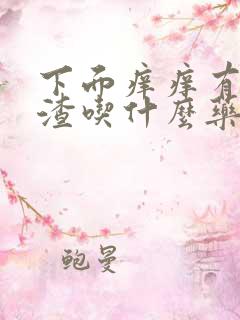 下而痒痒有
渣喫什麼藥
鲍曼